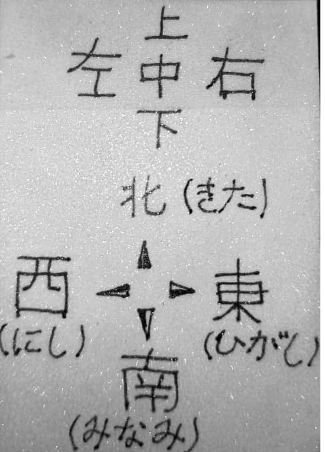 上
左 中 右
下
北 (きた)
西 東
(にし) (ひがし)
南
(みなみ)